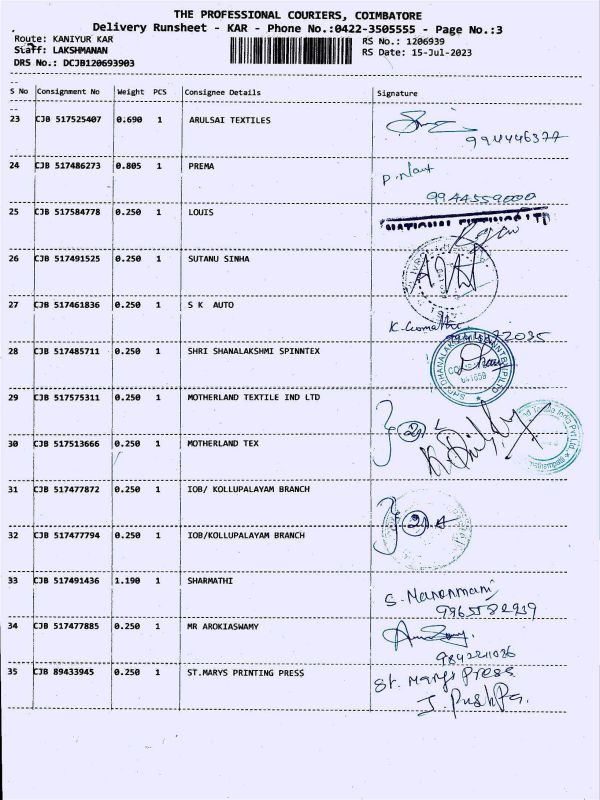 THE PROFESSIONAL COURIERS, COIMBATORE
Delivery Runsheet - KAR - Phone No.:0422-3505555 - Page No.:3
Route: KANIYUR KAR RS No.: 1206939
Staff: LAKSHMANAN RS Date: 15-Jul-2023
DRS No.: DCJB120693903
S No Consignment No Weight PCS Consignee Details Signature
23 CJB 517525407 0.690 1 ARULSAI TEXTILES
24 CJB 517486273 0.805 1 PREMA
9944559000
25 CJB 517584778 0.250 1 LOUIS
26 CJB 517491525 0.250 1 SUTANU SINHA
27 CJB 517461836 0.250 1 S K AUTO
28 CJB 517485711 0.250 1 SHRI SHANALAKSHMI SPINNTEX
29 CJB 517575311 0.250 1 MOTHERLAND TEXTILE IND LTD
2
30 CJB 517513666 0.250 1 MOTHERLAND TEX
31 CJB 517477872 0.250 1 IOB/ KOLLUPALAYAM BRANCH
2
32 CJB 517477794 0.250 1 IOB/KOLLUPALAYAM BRANCH
33 CJB 517491436 1.190 1 SHARMATHI S. Manonmani
9965582939
34 CJB 517477885 0.250 1 MR AROKIASWAMY
35 CJB 89433945 0.250 1 ST.MARYS PRINTING PRESS St. Marys Press
J. Pushpa.